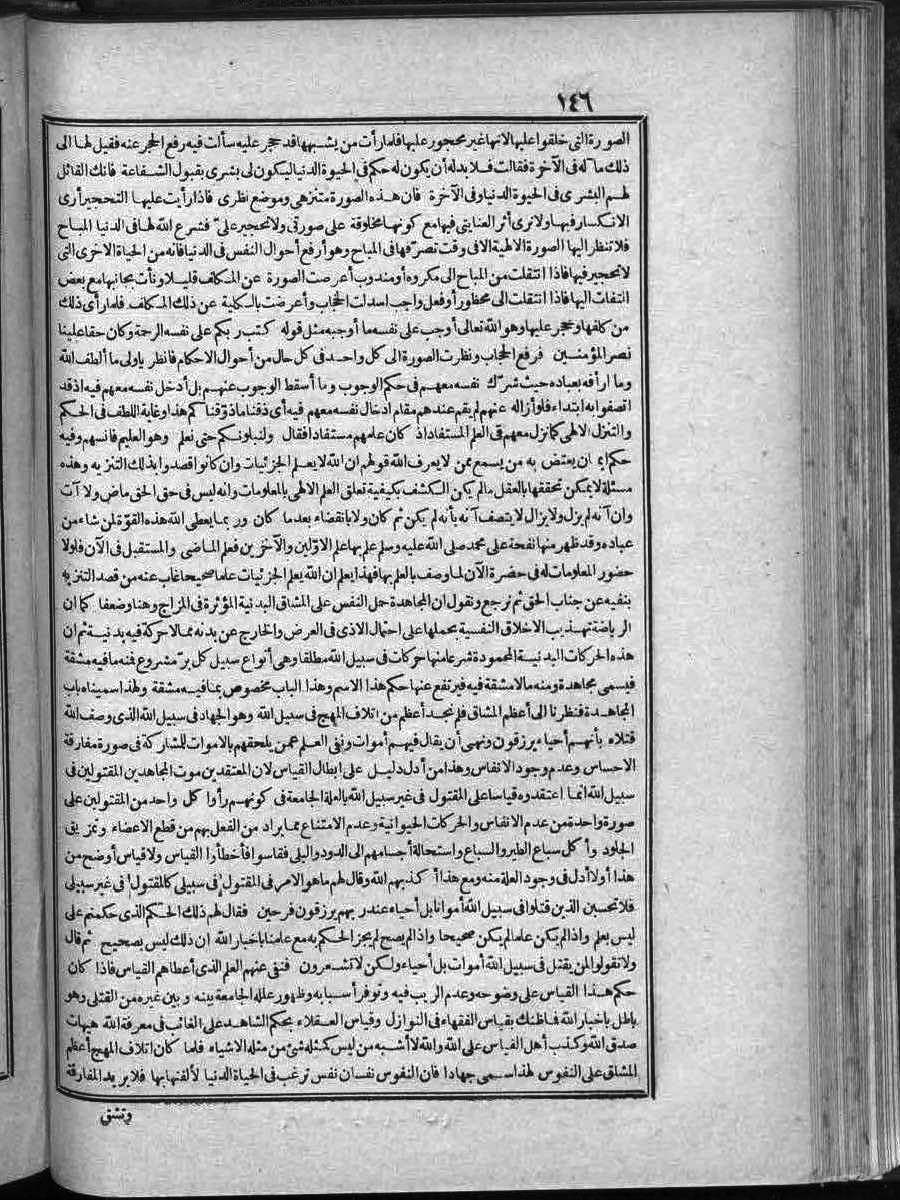 ١٤٦
الصورة التى خلقوا عليها لانها غير محجور عليها فلما رأت من يشبهها قد حجر عليه سألت فيه رفع الحجر عنه فقيل لها الى
ذلك ما له فى الآخرة فقالت فلا بد له أن يكون له حكم فى الحيوة الدنيا ليكون لى بشرى بقبول الشفاعة فانك القائل
لهم البشرى فى الحيوة الدنيا وفى الآخرة فان هذه الصورة متنزهى وموضع نظرى فاذا رأيت عليها التحجير أرى
الانكسار فيها ولا ترى أثر العناية بى فيها مع كونها مخلوقة على صورتى ولا تحجير علىّ فشرع الله لها فى الدنيا المباح
فلا تنظر اليها الصورة الالهية الا فى وقت تصرّفها فى المباح وهو أرفع أحوال النفس فى الدنيا فانه من الحياة الاخرى التى
لا تحجير فيها فاذا انتقلت من المباح الى مكروه أو مندوب أعرضت الصورة عن المكلف قليلا ونأت بجانبها مع بعض
التفات اليها فاذا انتقلت الى محظور أو فعل واجب اسدلت الحجاب وأعرضت بالكلية عن ذلك المكلف فلما رأى ذلك
من كلفها وحجر عليها وهو الله تعالى أوجب على نفسه ما أوجبه مثل قوله كتب ربكم على نفسه الرحمة وكان حقا علينا
نصر المؤمنين فرفع الحجاب ونظرت الصورة الى كل واحد فى كل حال من أحوال الاحكام فانظر يا ولى ما ألطف الله
وما ارأفه بعباده حيث شرّك نفسه معهم فى حكم الوجوب وما أسقط الوجوب عنهم بل أدخل نفسه معهم فيه اذ قد
اتصفوا به ابتداء فلو أزاله عنهم لم يقم عندهم مقام ادخال نفسه معهم فيه أى ذقنا ما ذوّقناكم هذا وغاية اللطف فى الحكم
والتنزل الالهى كما نزل معهم فى العلم المستفاد اذ كان علمهم مستفادا فقال ولنبلونكم حتى نعلم وهو العليم فانسهم وفيه
حكم ايمان يعتض به من يسمع ممن لا يعرف الله قولهم ان الله لا يعلم الجزئيات وان كانوا قصدوا بذلك التنزيه وهذه
مسئلة لا يمكن تحققها بالعقل ما لم يكن الكشف بكيفية تعلق العلم الالهى بالمعلومات وانه ليس فى حق الحق ماض ولا آت
وان آنه لم يزل ولا يزال لا يتصف آنه بأنه لم يكن ثم كان ولا بانقضاء بعد ما كان وربما يعطى الله هذه القوّة لمن شاء من
عباده وقد ظهر منها نفحة على محمد صلى الله عليه وسلم علم بها علم الاوّلين والآخرين فعلم الماضى والمستقبل فى الآن فلولا
حضور المعلومات له فى حضرة الآن لما وصف بالعلم بها فهذا يعلم ان الله يعلم الجزئيات علما صحيحا غاب عنه من قصد التنزيه
بنفيه عن جناب الحق ثم نرجع ونقول ان المجاهدة حمل النفس على المشاق البدنية المؤثرة فى المزاج وهنا وضعفا كما ان
الرياضة تهذيب الاخلاق النفسية بحملها على احتمال الاذى فى العرض والخارج عن بدنه مما لا حركة فيه بدنية ثم ان
هذه الحركات البدنية المحمودة شرعا منها حركات فى سبيل الله مطلقا وهى أنواع سبيل كل برّ مشروع فمنه ما فيه مشقة
فيسمى مجاهدة ومنه ما لا مشقة فيه فيرتفع عنها حكم هذا الاسم وهذا الباب مخصوص بما فيه مشقة ولهذا سميناه باب
المجاهدة فنظرنا الى أعظم المشاق فلم نجد أعظم من اتلاف المهج فى سبيل الله وهو الجهاد فى سبيل الله الذى وصف الله
قتلاه بأنهم أحياء يرزقون ونهى أن يقال فيهم أموات ونفى العلم عمن يلحقهم بالاموات للمشاركة فى صورة مفارقة
الاحساس وعدم وجود الانفاس وهذا من أدل دليل على ابطال القياس لان المعتقدين موت المجاهدين المقتولين فى
سبيل الله انما اعتقدوه قياسا على المقتول فى غير سبيل الله بالعلة الجامعة فى كونهم رأوا كل واحد من المقتولين على
صورة واحدة من عدم الانفاس والحركات الحيوانية وعدم الامتناع مما يراد من الفعل بهم من قطع الاعضاء وتمزيق
الجلود وأكل سباع الطير والسباع واستحالة أجسامهم الى الدود والبلى فقاسوا فأخطأوا القياس ولا قياس أوضح من
هذا ولا أدل فى وجود العلة منه ومع هذا أكذبهم الله وقال لهم ما هو الامر فى المقتول فى سبيلى كالمقتول فى غير سبيلى
فلا تحسبن الذين قتلوا فى سبيل الله أمواتا بل أحياء عند ربهم يرزقون فرحين فقال لهم ذلك الحكم الذى حكمتم على
ليس بعلم واذا لم يكن علما لم يكن صحيحا واذا لم يصح لم يجز الحكم به مع علمنا باخبار الله ان ذلك ليس بصحيح ثم قال
ولا تقولوا لمن يقتل فى سبيل الله أموات بل أحياء ولكن لا تشعرون فنفى عنهم العلم الذى أعطاهم القياس فاذا كان
حكم هذا القياس على وضوحه وعدم الريب فيه وتوفر أسبابه وظهور علله الجامعة بينه وبين غيره من القتلى وهو
باطل باخبار الله فما ظنك بقياس الفقهاء فى النوازل وقياس العقلاء بحكم الشاهد على الغائب فى معرفة الله هيهات
صدق الله وكذب أهل القياس على الله والله لا أشبه من ليس كمثله شئ من مثله الاشياء فلما كان اتلاف المهج أعظم
المشاق على النفوس لهذا سمى جهادا فان النفوس نفسان نفس ترغب فى الحياة الدنيا لألفتها بها فلا يريد المفارقة
وتشق